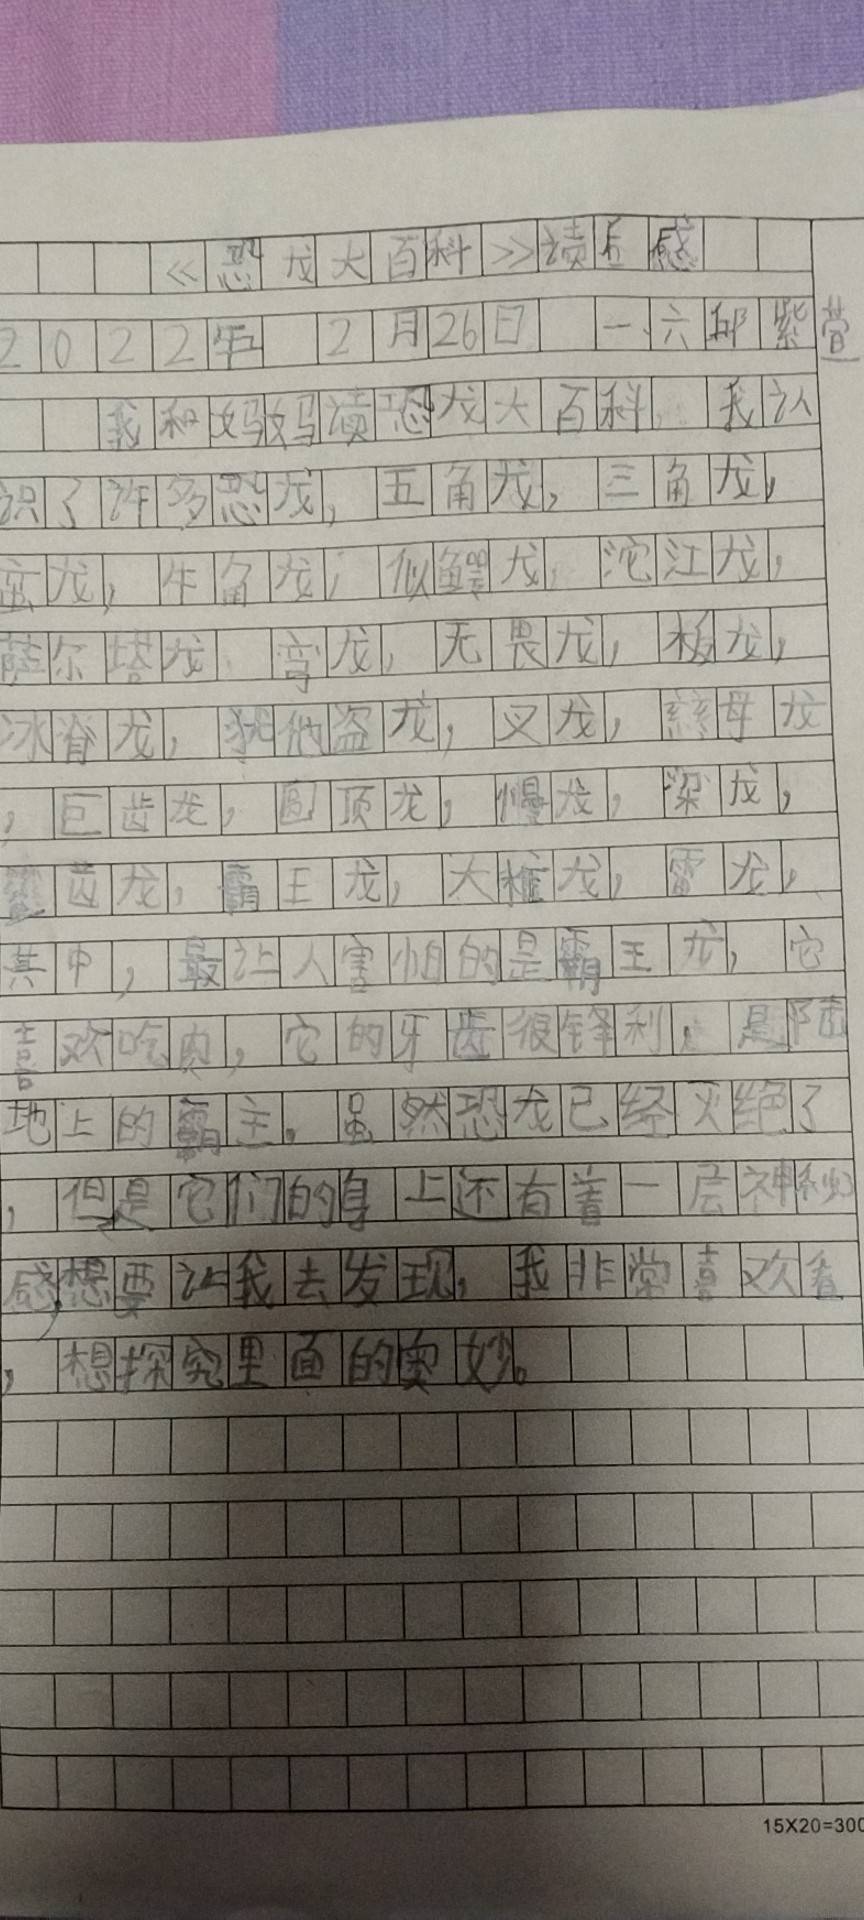 《恐龙大百科》读后感
2022年 2月26日 一、六邱紫萱
我和妈妈读恐龙大百科，我认
识了许多恐龙，五角龙，三角龙，
盔龙，牛角龙，似鳄龙，沱江龙，
萨尔塔龙，弯龙，无畏龙，板龙，
冰脊龙，犹他盗龙，叉龙，慈母龙
，巨齿龙，圆顶龙，慢龙，梁龙，
齿龙，霸王龙，大椎龙，雷龙，
其中，最让人害怕的是霸王龙，它
喜欢吃肉，它的牙齿很锋利，是陆
地上的霸主。虽然恐龙已经灭绝了
，但是它们的身上还有着一层神秘
感，想要让我去发现，我非常喜欢看
，想探究里面的奥妙。
15X20=300